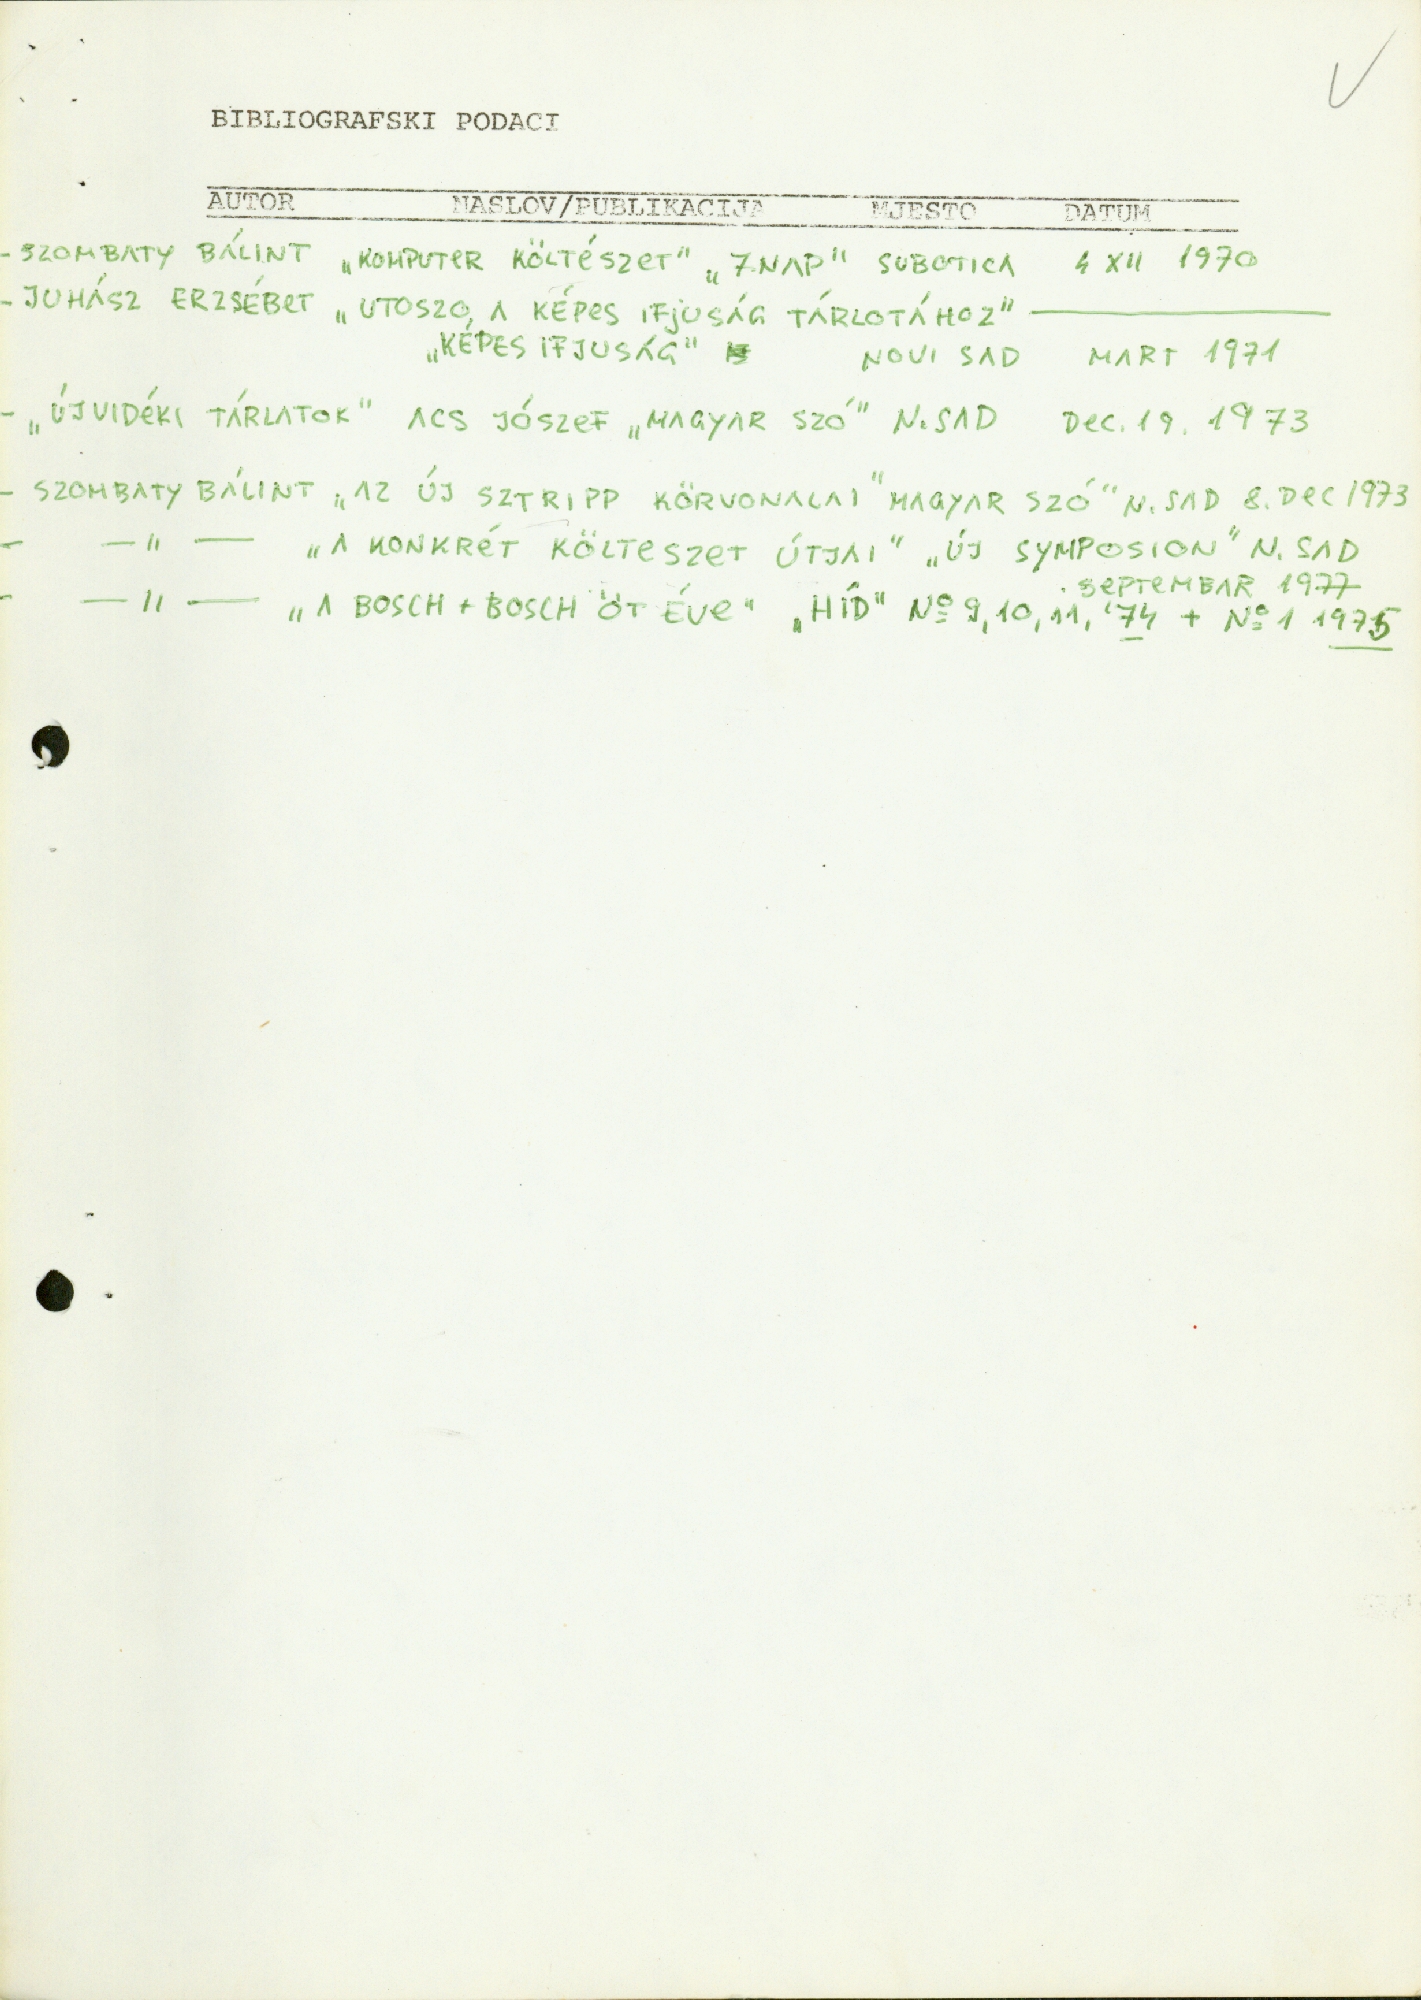 BIBLIOGRAFSKI PODACI
AUTOR NASLOV/PUBLIKACIJA MJESTO DATUM
- SZOMBATY BÁLINT „KOMPUTER KÖLTÉSZET" „7 NAP" SUBOTICA 4 XII 1970
- JUHÁSZ ERZSÉBET „UTOSZO, A KÉPES IFJUSÁG TÁRLOTÁHOZ" ———
„KÉPES IFJUSÁG" NOVI SAD MART 1971
- „ÚJVIDÉKI TÁRLATOK" ACS JÓSZEF „MAGYAR SZÓ" N. SAD DEC. 19. 1973
- SZOMBATY BÁLINT „AZ ÚJ SZTRIPP KÖRVONALAI" MAGYAR SZÓ" N. SAD 8. DEC 1973
- —"— „A KONKRÉT KÖLTESZET ÚTJAI" „ÚJ SYMPOSION" N. SAD
SEPTEMBAR 1977
- —"— „A BOSCH + BOSCH ÖT ÉVE" „HÍD" Nº 9, 10, 11, '74 + Nº 1 1975